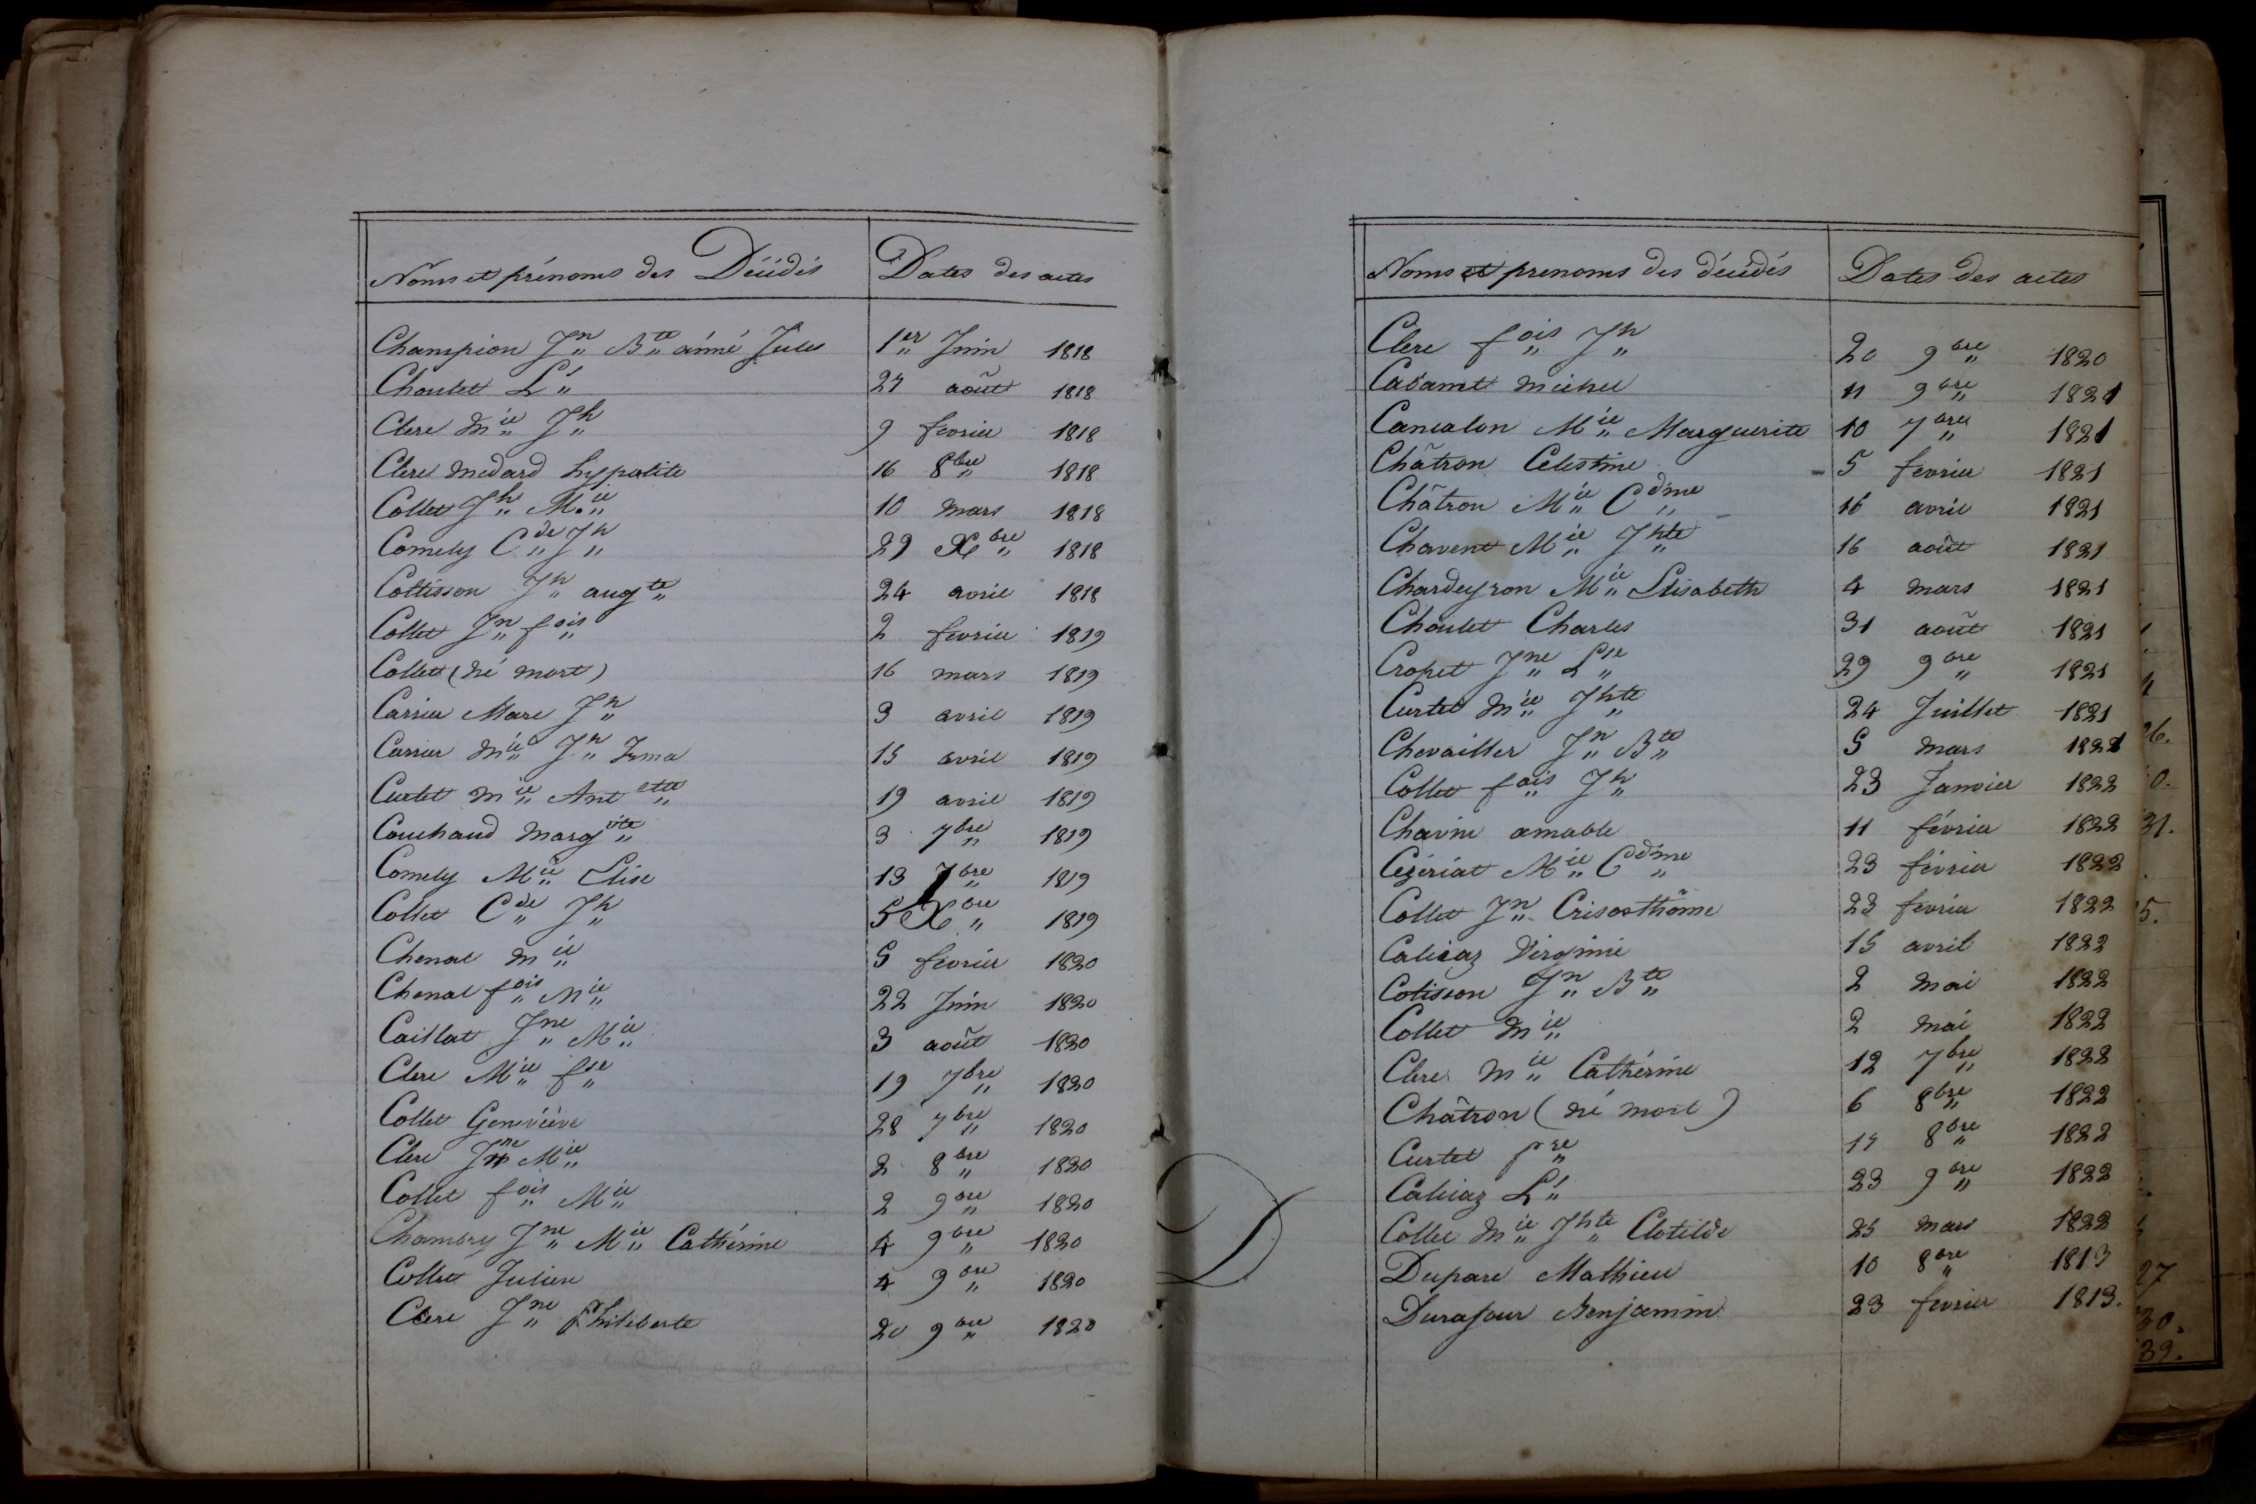 Noms et prénoms des Décédés Dates des actes
Champion Jn Bte aimé Jules 1er Juin 1818
Choulet Ls 27 août 1818
Clerc Mie Jh 9 fevrier 1818
Clerc Medard hypolite 16 8bre 1818
Collet Jh Mie 10 mars 1818
Comely Cde Jh 29 Xbre 1818
Cottisson Jh augte 24 avril 1818
Collet Jn fois 2 fevrier 1819
Collet (né mort) 16 mars 1819
Carrier Marc Jh 3 avril 1819
Carrier Mie Jh Irma 15 avril 1819
Curtet Mie Antette 19 avril 1819
Couchaud Margvite 3 7bre 1819
Comely Mie Elise 13 7bre 1819
Collet Cde Jh 5 Xbre 1819
Chenal Mie 5 fevrier 1820
Chenal fois Mie 22 Juin 1820
Caillat Jne Mie 3 août 1820
Clerc Mie fse 19 7bre 1820
Collet Geneviève 28 7bre 1820
Clerc Jne Mie 2 8bre 1820
Collet fois Mie 2 9bre 1820
Chambry Jne Mie Cathérine 4 9bre 1820
Collet Julien 4 9bre 1820
Clerc Jne Philiberte 20 9bre 1820
Noms et prenoms des décédés Dates des actes
Clerc fois Jh 20 9bre 1820
Cadamet michel 11 9bre 1821
Cancalon Mie Marguerite 10 7bre 1821
Châtron Celestine 5 fevrier 1821
Châtron Mie Cdme 16 avril 1821
Chavent Mie Jhte 16 août 1821
Chardeyron Mie Elisabeth 4 mars 1821
Choulet Charles 31 août 1821
Cropet Jne Lse 29 9bre 1821
Curtet Mie Jhte 24 Juillet 1821
Chevailler Jn Bte 5 mars 1821
Collet fois Jh 23 Janvier 1822
Chavin amable 11 février 1822
Cézériat Mie Cdme 23 février 1822
Collet Jn Crisosthôme 23 fevrier 1822
Calicaz Virginie 15 avril 1822
Cotisson Jn Bte 2 mai 1822
Collet Mie 2 mai 1822
Clerc Mie Cathérine 12 7bre 1822
Châtron (né mort) 6 8bre 1822
Curtet Pre 17 8bre 1822
Calicaz Ls 23 9bre 1822
Collet Mie Jhte Clotilde 25 mars 1822
D
Duparc Mathieu 10 8bre 1813
Durafour Benjamin 23 fevrier 1813.
26.
31.
5.
27
30.
39.